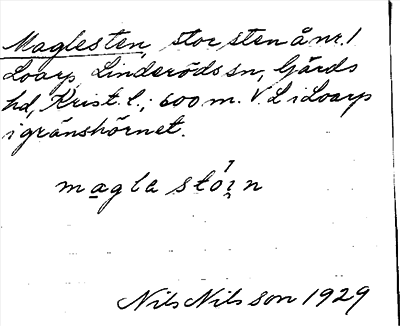 Maglesten, stor sten å nr. 1
Loarp, Linderöds sn, Gärds
hd, Krist. l.; 600 m. V. L i Loarp
i gränshörnet.
magla stöı̨n
Nils Nilsson 1929